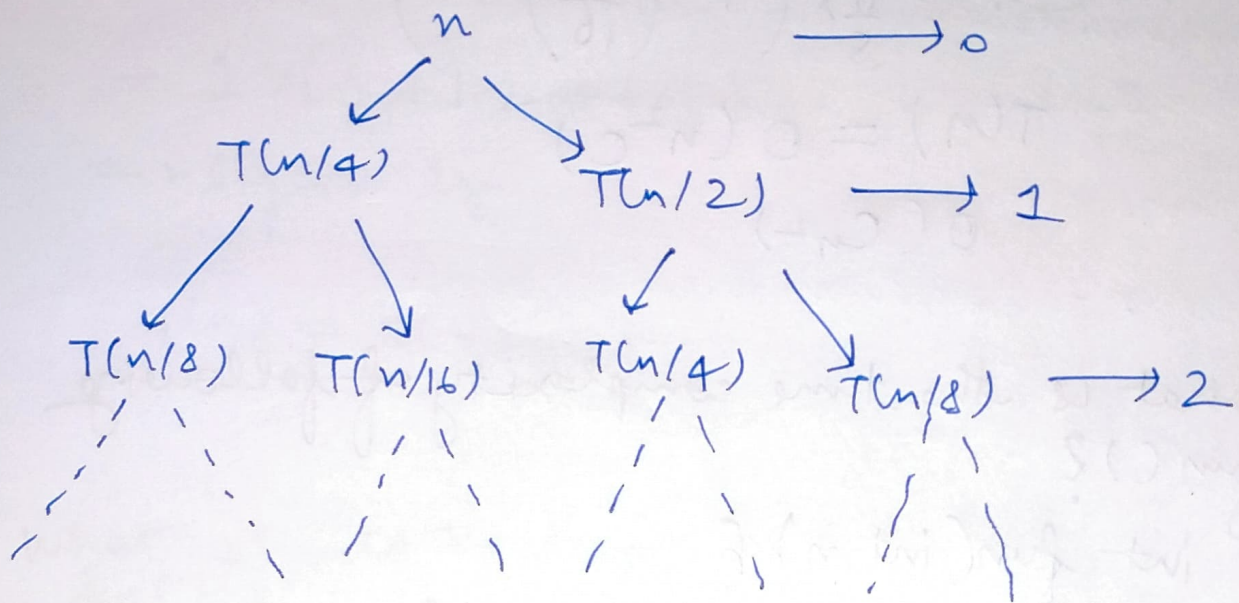 n → 0
T(n/4) T(n/2) → 1
T(n/8) T(n/16) T(n/4) T(n/8) → 2